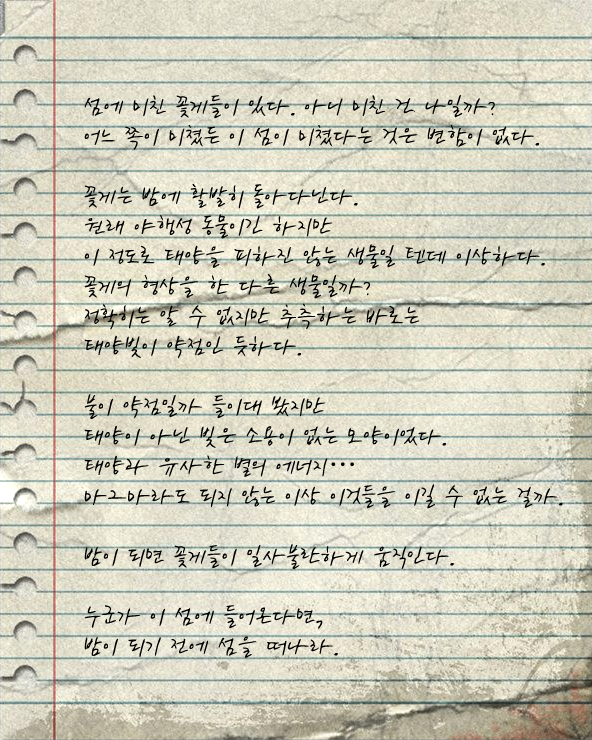 섬에 미친 꽃게들이 있다. 아니 미친 건 나일까?
어느 쪽이 미쳤든 이 섬이 미쳤다는 것은 변함이 없다.
꽃게는 밤에 활발히 돌아다닌다.
원래 야행성 동물이긴 하지만
이 정도로 태양을 피하진 않는 생물일 텐데 이상하다.
꽃게의 형상을 한 다른 생물일까?
정확히는 알 수 없지만 추측하는 바로는
태양빛이 약점인 듯하다.
불이 약점일까 들이대 봤지만
태양이 아닌 빛은 소용이 없는 모양이었다.
태양과 유사한 별의 에너지…
마그마라도 되지 않는 이상 이것들을 이길 수 없는 걸까.
밤이 되면 꽃게들이 일사불란하게 움직인다.
누군가 이 섬에 들어온다면,
밤이 되기 전에 섬을 떠나라.